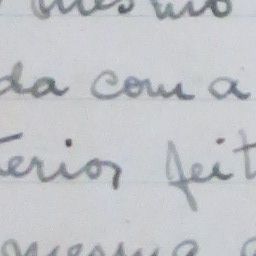 mesmo
da com a
terior feit
mesma